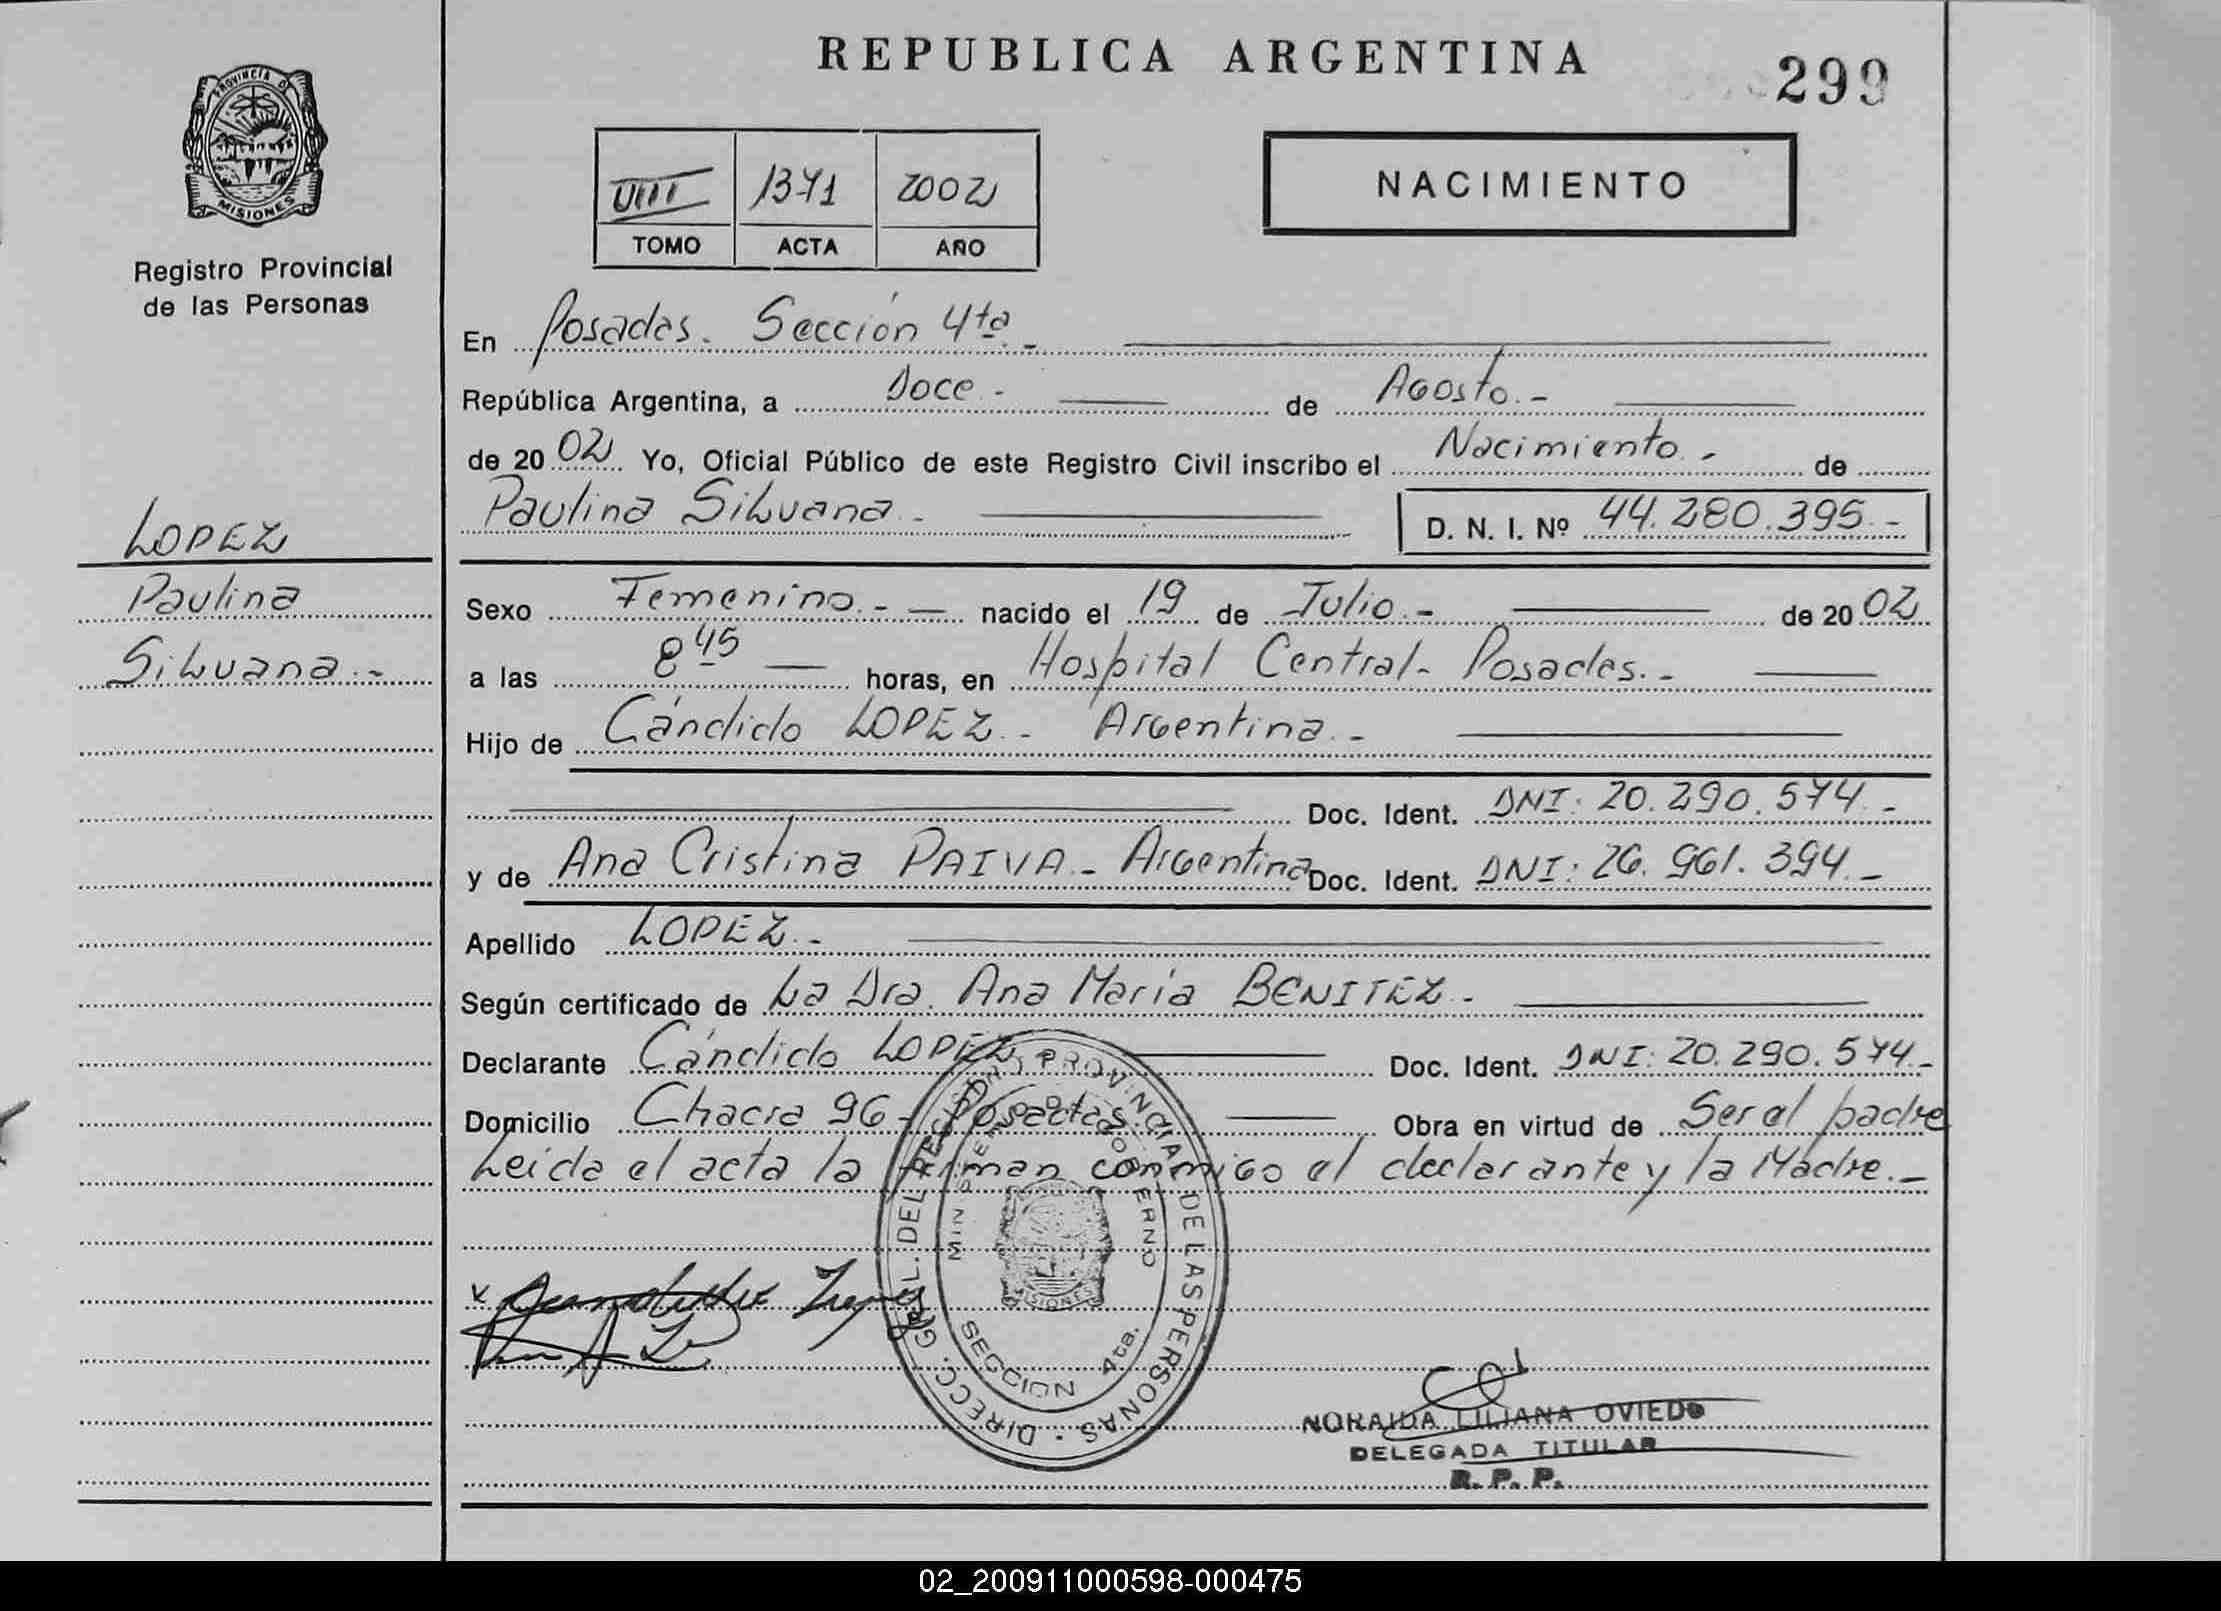 REPUBLICA ARGENTINA
299
PROVINCIA DE
MISIONES
Registro Provincial
de las Personas
VIII 1371 2002
TOMO ACTA AÑO
NACIMIENTO
En Posadas. Sección 4ta.-
República Argentina, a Doce.- de Agosto.-
de 2002 Yo, Oficial Público de este Registro Civil inscribo el Nacimiento.- de
Paulina Silvana.- D. N. I. Nº 44.280.395.-
LOPEZ
Paulina
Silvana.-
Sexo Femenino.- nacido el 19 de Julio.- de 2002
a las 8 45 horas, en Hospital Central- Posadas.-
Hijo de Cándido LOPEZ.- Argentina.-
Doc. Ident. DNI: 20.290.574.-
y de Ana Cristina PAIVA.- Argentina Doc. Ident. DNI: 26.961.394.-
Apellido LOPEZ.-
Según certificado de La Dra. Ana María BENITEZ.-
Declarante Cándido LOPEZ Doc. Ident. DNI: 20.290.574.-
Domicilio Chacra 96- Posadas. Obra en virtud de Ser el padre
Leida el acta la firman conmigo el declarante y la Madre.-
DIRECC. GRAL. DEL REGISTRO PROVINCIAL DE LAS PERSONAS
GOBIERNO
MISIONES
SECCION 4ta.
NORAIDA LILIANA OVIEDO
DELEGADA TITULAR
R. P. P.
02_200911000598-000475